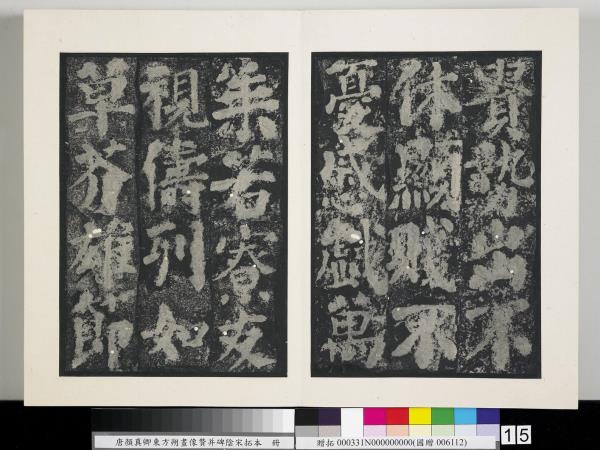 貴既出不
休顯賤不
憂戚戲萬
乘若寮友
視儔列如
草芥雄節
唐顏真卿東方朔畫像贊并碑陰宋拓本 冊
贈拓 000331N000000000(國贈 006112)
15